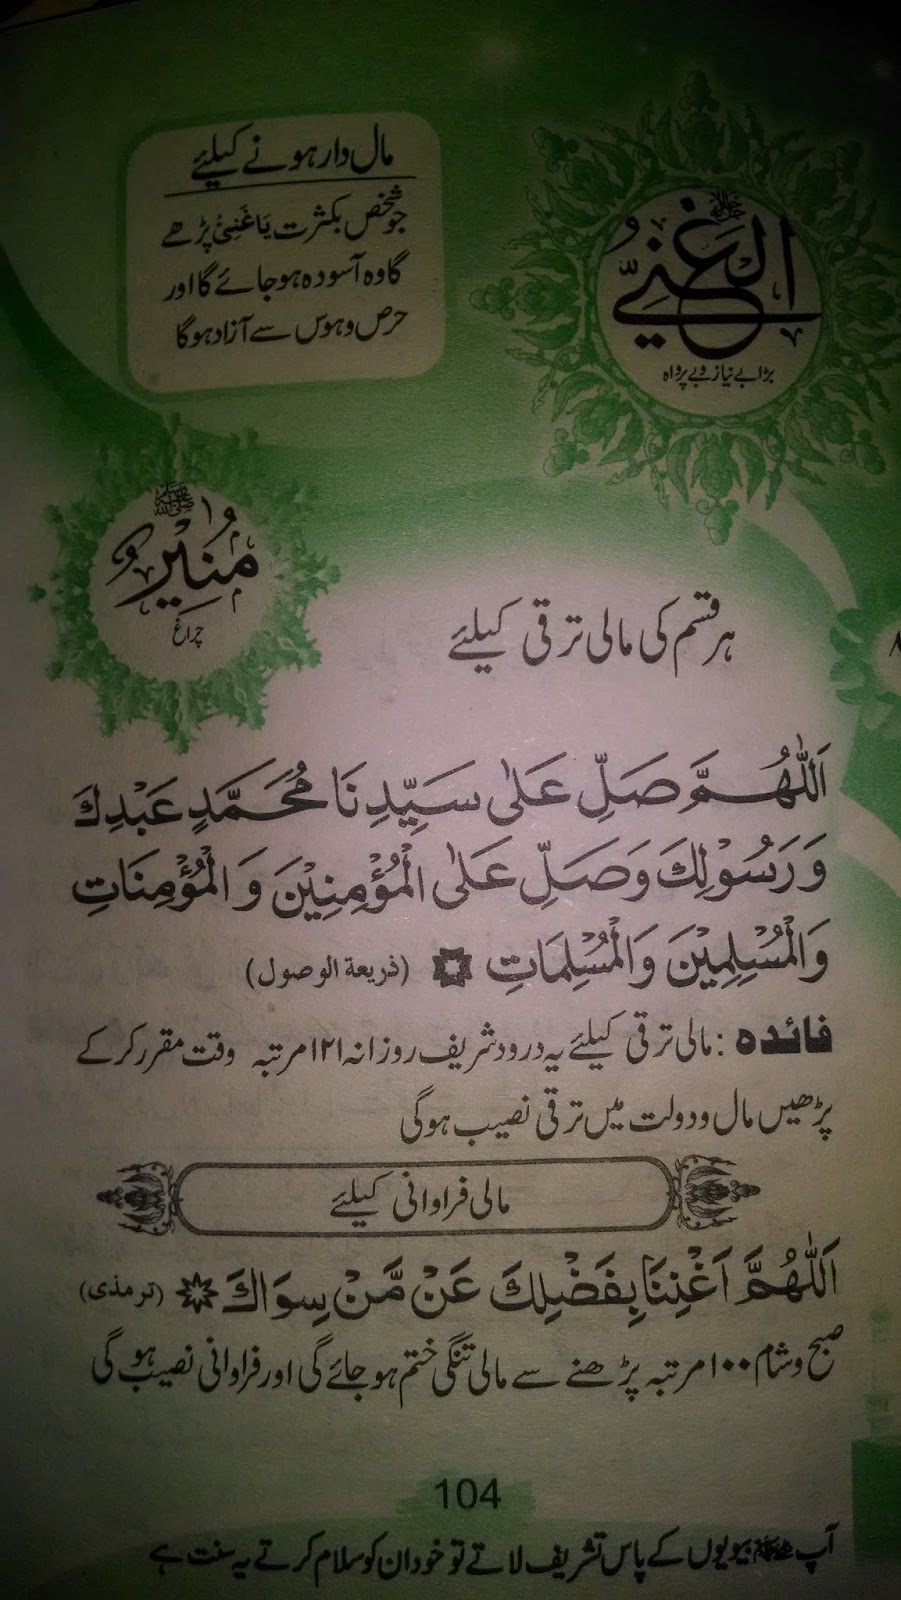 مال دار ہونے کیلئے
جو شخص بکثرت یَا غَنِیُّ پڑھے
گا وہ آسودہ ہو جائے گا اور
حرص و ہوس سے آزاد ہوگا
اَلْغَنِیُّ
جل جلالہ
بڑا بے نیاز و بے پرواہ
ﷺ
مُنِیْرٌ
چراغ
ہر قسم کی مالی ترقی کیلئے
اَللّٰهُمَّ صَلِّ عَلٰی سَیِّدِنَا مُحَمَّدٍ عَبْدِكَ
وَ رَسُوْلِكَ وَصَلِّ عَلٰی الْمُؤْمِنِیْنَ وَ الْمُؤْمِنَاتِ
وَالْمُسْلِمِیْنَ وَالْمُسْلِمَاتِ (ذریعة الوصول)
فائدہ : مالی ترقی کیلئے یہ درود شریف روزانہ ۱۲۱ مرتبہ وقت مقرر کر کے
پڑھیں مال و دولت میں ترقی نصیب ہوگی
مالی فراوانی کیلئے
اَللّٰهُمَّ اَغْنِنَا بِفَضْلِكَ عَنْ مَّنْ سِوَاكَ (ترمذی)
صبح و شام ۱۰۰ مرتبہ پڑھنے سے مالی تنگی ختم ہو جائے گی اور فراوانی نصیب ہوگی
104
آپ ﷺ بیویوں کے پاس تشریف لاتے تو خود ان کو سلام کرتے یہ سنت ہے